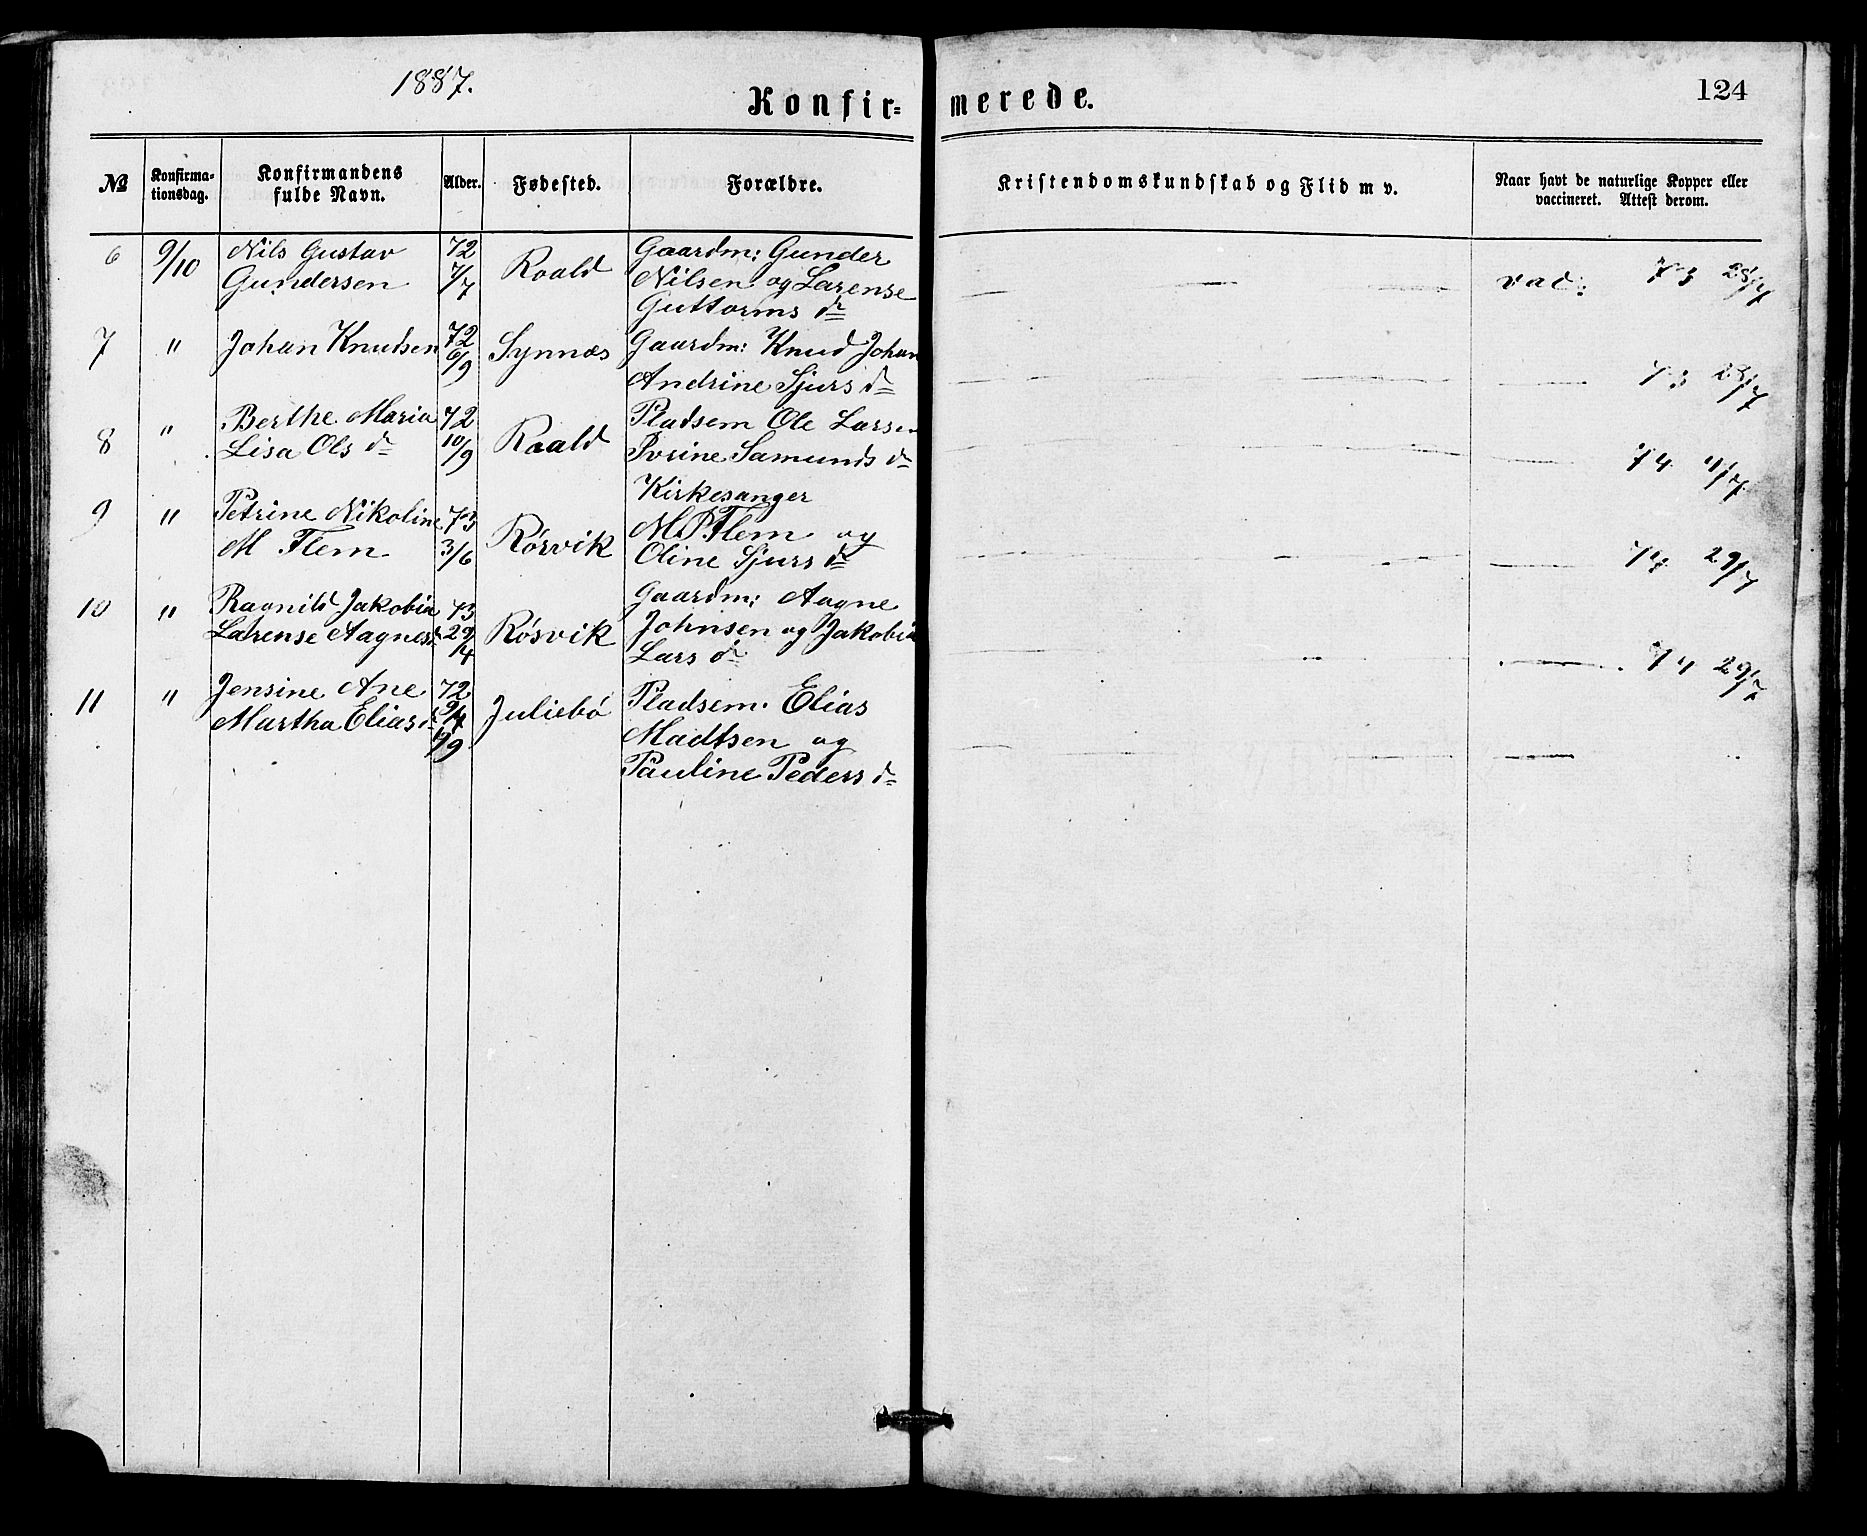 1887.
Konfir= merede.
124
No
Konfirma-
tionsdag.
Konfirmandens
fulde Navn.
Alder.
Fødested.
Forældre.
Kristendomskundskab og Flid m v.
Naar havt de naturlige Kopper eller
vaccineret. Attest derom.
6 9/10 Nils Gustav 72 Roald Gaardm: Gunder
Gundersen 7/7 Nilsen og Larense vac: 73 25/7
Guttorms d
7 " Johan Knutsen 72 Synnæs Gaardm: Knud Johan
6/9 Andrine Sjurs d 73
8 " Berthe Maria 72 Roald Pladsem Ole Larsen
Lisa Ols d 10/9 Ivrine Samunds d 74 4/7
Kirkesanger
9 " Petrine Nikoline 73 Rörvik M. P. Flem og
M Flem 3/6 Oline Sjurs d 74 29/7
10 " Ragnild Jakobia 73 Rösvik Gaardm: Aagne
Larense Aagnes d 29/4 Johnsen og Jakobia
Lars d 74 29/7
11 " Jensine Ane 72 Juliebö Pladsem. Elias
Martha Elias d Madtsen og
Pauline Peders d